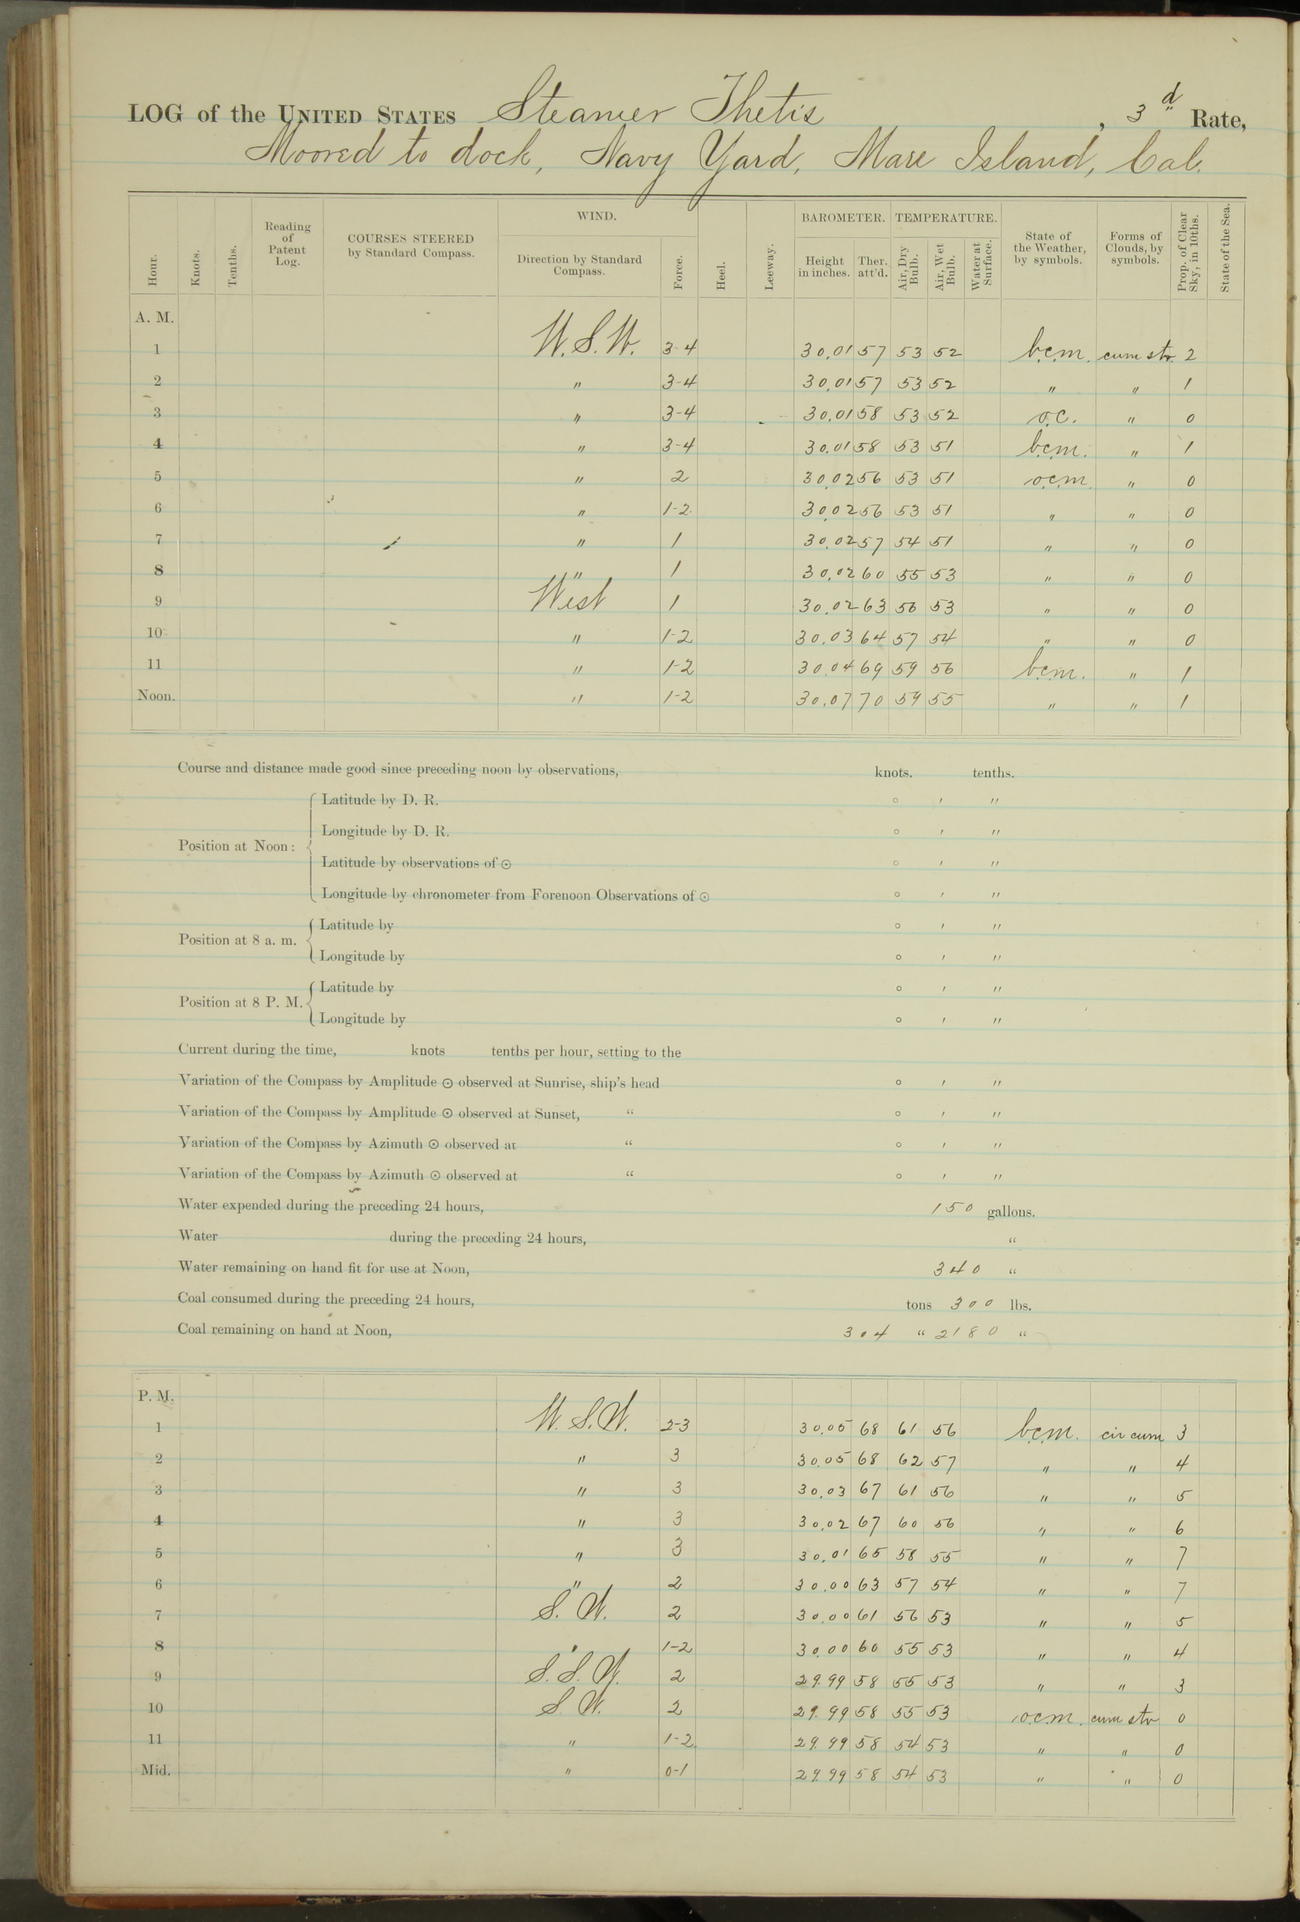 LOG of the UNITED STATES Steamer Thetis, 3d Rate,
Moored to dock, Navy Yard, Mare Island, Cal.
Hour. Knots. Tenths. Reading of Patent Log. COURSES STEERED by Standard Compass. WIND. Direction by Standard Compass. Force. Heel. Leeway. BAROMETER. Height in inches. Ther. att'd. TEMPERATURE. Air, Dry Bulb. Air, Wet Bulb. Water at Surface. State of the Weather, by symbols. Forms of Clouds, by symbols. Prop. of Clear Sky, in 10ths. State of the Sea.
A. M.
1 W.S.W. 3-4 30.01 57 53 52 b.c.m. cum str. 2
2 " 3-4 30.01 57 53 52 " " 1
3 " 3-4 30.01 58 53 52 o.c. " 0
4 " 3-4 30.01 58 53 51 b.c.m. " 1
5 " 2 30.02 56 53 51 o.c.m. " 0
6 " 1-2 30.02 56 53 51 " " 0
7 " 1 30.02 57 54 51 " " 0
8 " 1 30.02 60 55 53 " " 0
9 West 1 30.02 63 56 53 " " 0
10 " 1-2 30.03 64 57 54 " " 0
11 " 1-2 30.04 69 59 56 b.c.m. " 1
Noon. " 1-2 30.07 70 59 55 " " 1
Course and distance made good since preceding noon by observations, knots. tenths.
Position at Noon: Latitude by D. R. ° ' "
Longitude by D. R. ° ' "
Latitude by observations of ⊙ ° ' "
Longitude by chronometer from Forenoon Observations of ⊙ ° ' "
Position at 8 a. m. Latitude by ° ' "
Longitude by ° ' "
Position at 8 P. M. Latitude by ° ' "
Longitude by ° ' "
Current during the time, knots tenths per hour, setting to the
Variation of the Compass by Amplitude ⊙ observed at Sunrise, ship's head ° ' "
Variation of the Compass by Amplitude ⊙ observed at Sunset, " ° ' "
Variation of the Compass by Azimuth ⊙ observed at " ° ' "
Variation of the Compass by Azimuth ⊙ observed at " ° ' "
Water expended during the preceding 24 hours, 150 gallons.
Water during the preceding 24 hours, "
Water remaining on hand fit for use at Noon, 340 "
Coal consumed during the preceding 24 hours, tons 300 lbs.
Coal remaining on hand at Noon, 304 " 2180 "
P. M.
1 W.S.W. 2-3 30.05 68 61 56 b.c.m. cir cum 3
2 " 3 30.05 68 62 57 " " 4
3 " 3 30.03 67 61 56 " " 5
4 " 3 30.02 67 60 56 " " 6
5 " 3 30.01 65 58 55 " " 7
6 " 2 30.00 63 57 54 " " 7
7 S.W. 2 30.00 61 56 53 " " 5
8 " 1-2 30.00 60 55 53 " " 4
9 S.S.W. 2 29.99 58 55 53 " " 3
10 S.W. 2 29.99 58 55 53 o.c.m. cum str 0
11 " 1-2 29.99 58 54 53 " " 0
Mid. " 0-1 29.99 58 54 53 " " 0